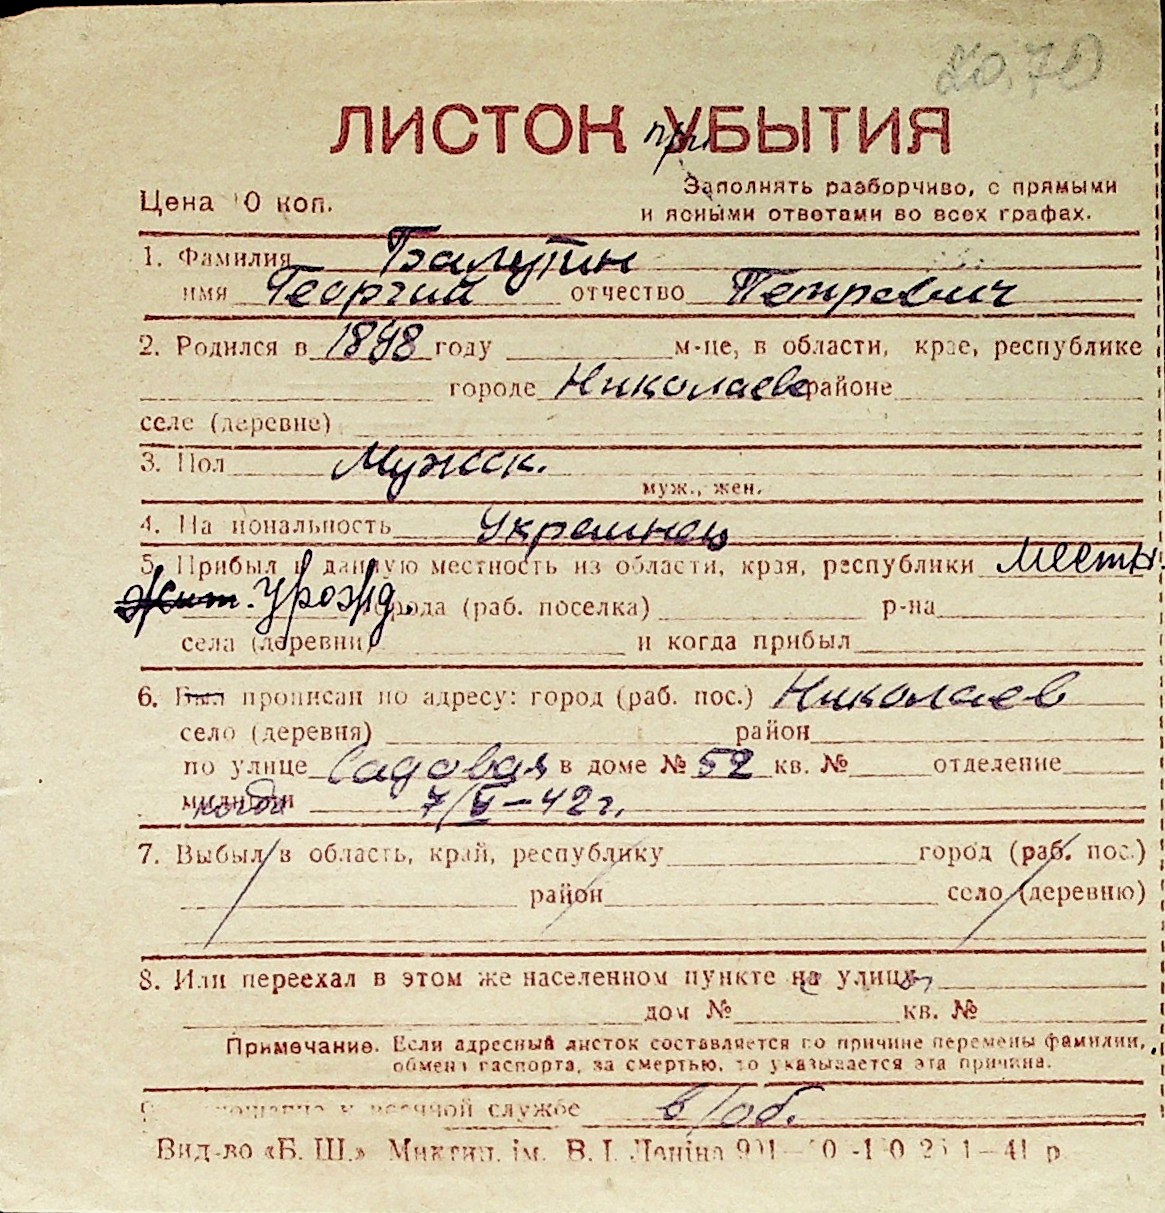 20.70
ЛИСТОК при УБЫТИЯ
Цена 10 коп.
Заполнять разборчиво, с прямыми
и ясными ответами во всех графах.
1. Фамилия Балутин
имя Георгий отчество Петрович
2. Родился в 1898 году м-це, в области, крае, республике
городе Николаеве районе
селе (деревне)
3. Пол Мужск.
муж., жен.
4. Национальность Украинец
5. Прибыл в данную местность из области, края, республики Местн.
жит. урожд. города (раб. поселка) р-на
села (деревни) и когда прибыл
6. Был прописан по адресу: город (раб. пос.) Николаев
село (деревня) район
по улице Садовая в доме № 52 кв. № отделение
милиции когда 7/V-42 г.
7. Выбыл в область, край, республику город (раб. пос.)
район село (деревню)
8. Или переехал в этом же населенном пункте на улицу
дом № кв. №
Примечание. Если адресный листок составляется по причине перемены фамилии,
обмена паспорта, за смертью, то указывается эта причина.
9. отношение к военной службе в/об.
Вид-во «Б. Ш.» Микол. ім. В. І. Леніна